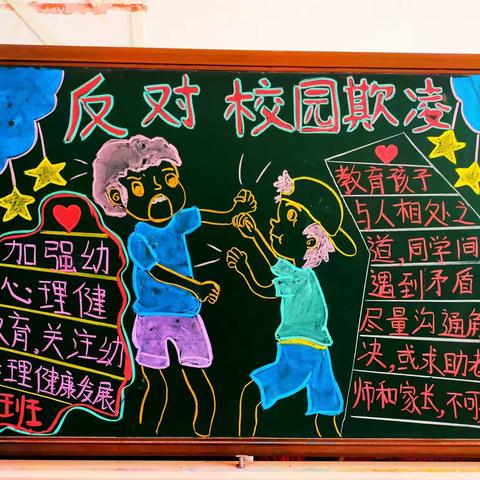 反对 校园欺凌
加强幼
心理健
教育。关注幼
理健康发展
班
教育孩子
与人相处之
道,同学间
遇到矛盾
尽量沟通解
决,或求助老
师和家长,不可